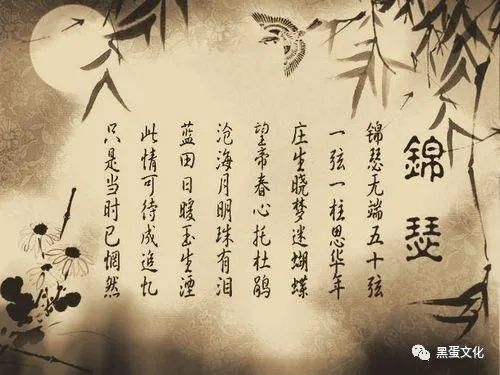 錦瑟
锦瑟无端五十弦
一弦一柱思华年
庄生晓梦迷蝴蝶
望帝春心托杜鹃
沧海月明珠有泪
蓝田日暖玉生湮
此情可待成追忆
只是当时已惘然
黑蛋文化